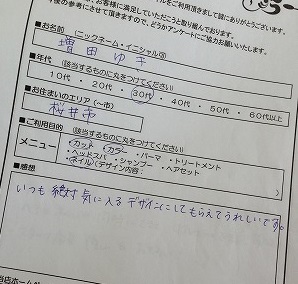 お客様に満足していただこうと取り組んでおります。
後の参考にさせて頂きますので、どうかアンケートにご協力お願いいたします。
■お名前 (ニックネーム・イニシャル可)
増田ゆき
■年代 (該当するものに丸をつけてください)
10代 ・ 20代 ・ 30代 ・ 40代 ・ 50代 ・ 60代以上
■お住まいのエリア(〜市)
桜井市
■ご利用目的 (該当するものに丸をつけてください)
メニュー
・カット ・カラー ・パーマ ・トリートメント
・ヘッドスパ ・シャンプー ・ヘアセット
・ネイル(デザイン内容: )
■感想
いつも絶対気に入るデザインにしてもらえてうれしいです。
当店ホーム